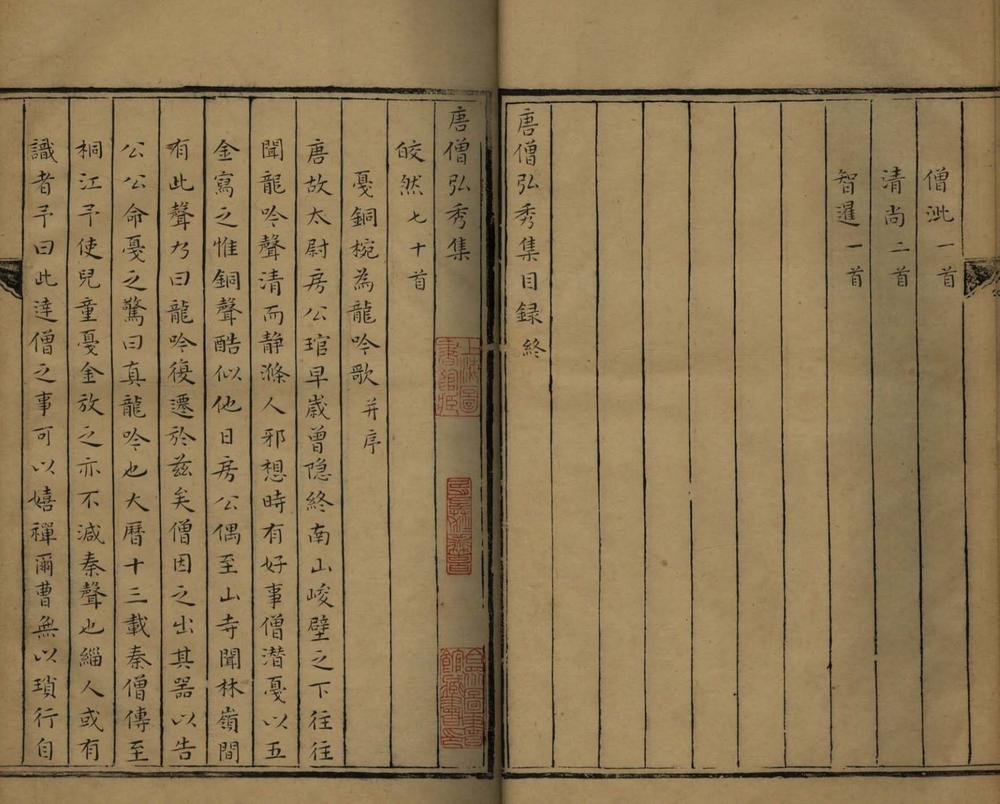 僧泚一首
清尚二首
智暹一首
唐僧弘秀集目録終
唐僧弘秀集
皎然七十首
戞銅椀為龍吟歌并序
唐故太尉房公琯早歲曾隐終南山峻壁之下往往
聞龍吟聲清而静滌人邪想時有好事僧潜戞以五
金寫之惟銅聲酷似他日房公偶至山寺聞林嶺間
有此聲乃曰龍吟復遷於兹矣僧因之出其器以告
公公命戞之驚曰真龍吟也大曆十三載秦僧傳至
桐江予使兒童戞金放之亦不減秦聲也緇人或有
識者予曰此達僧之事可以嬉禪爾曹無以瑣行自